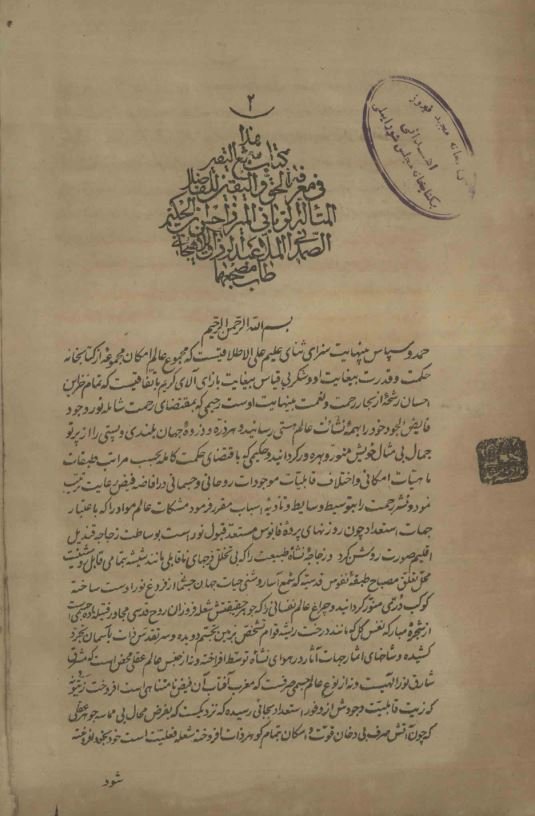 ۲
هذا
کتاب شمع الیقین
فی معرفة الحق و الیقین للفاضل
المتأله الربانی المیرزا حسن بن الحکیم
الصمدانی الملا عبدالرزاق اللاهیجی
طاب مضجعهما
بسم الله الرحمن الرحیم
حمد و سپاس بینهایت سزای ثنای علیم علی الاطلاقیست که مجموع عالم امکان مجموعه از کتابخانه
حکمت و قدرت بیغایت او و شکر بی قیاس بیغایت بازای آلای کریم باتفاقیست که تمام خزاین
احسان رشحهٔ از بحار رحمت و نعمت بینهایت اوست رحیمی که بمقتضای رحمت شامله نور وجود
فایض الجود خود را بهمه نشئات عالم هستی رسانیده هر ذره و ذروهٔ جهان بلندی و پستی را از پرتو
جمال بی مثال خویش منور و بهره ور گردانید و حکیمی که باقتضای حکمت کامله بحسب مراتب طبقات
ماهیات امکانی و اختلاف قابلیات موجودات روحانی و جسمانی در افاضه فیض رعایت ترتیب
نمود و نشر رحمت را بتوسیط وسایط و تأدیه اسباب مقرر فرمود مشکات عالم مواد را که باعتبار
جهات استعداد چون روزنهای پردهٔ فانوس مستعد قبول نور است بوساطت زجاجه قندیل
اقلیم صورت روشن کرد و زجاجه نشاه طبیعت را که بی تخلل فرجهای ناقابلی مانند شیشه تمامی قابل
محل تعلق مصباح طبقهٔ نفوس قدسیه که شمع آسا روشنی حیات جهان جسم از فروغ نور اوست ساخته
کوکب دری منور گردانید و چراغ عالم نفسانی را که جوهر حقیقتش شعله فروزان روح قدسی
از شجرهٔ مبارکه نفس کل که مانند درخت ریشه قوام تشخص بزمین تجسم دویده و سر تقدس ذات بآسمان تجرد
کشیده و شاخهای اشارجهات آثار در هوای نشاه توسط افراخته و نه از جنس عالم عقلی محض است که مشرق
شارق نور الهیست و نه از نوع عالم جسمی صرفست که مغرب آفتاب آن فیض نامتناهی است افروخت زیتونه
که زیت قابلیت وجودش از وفور استعداد بجائی رسیده که نزدیکست که بفرض محال بی مماسه جوهر عقلی
که چون آتش صرف بی دخان قوت و امکان بتمام گوهر ذات افروخته شعله فعلیت است خود بخود افروخته
شود